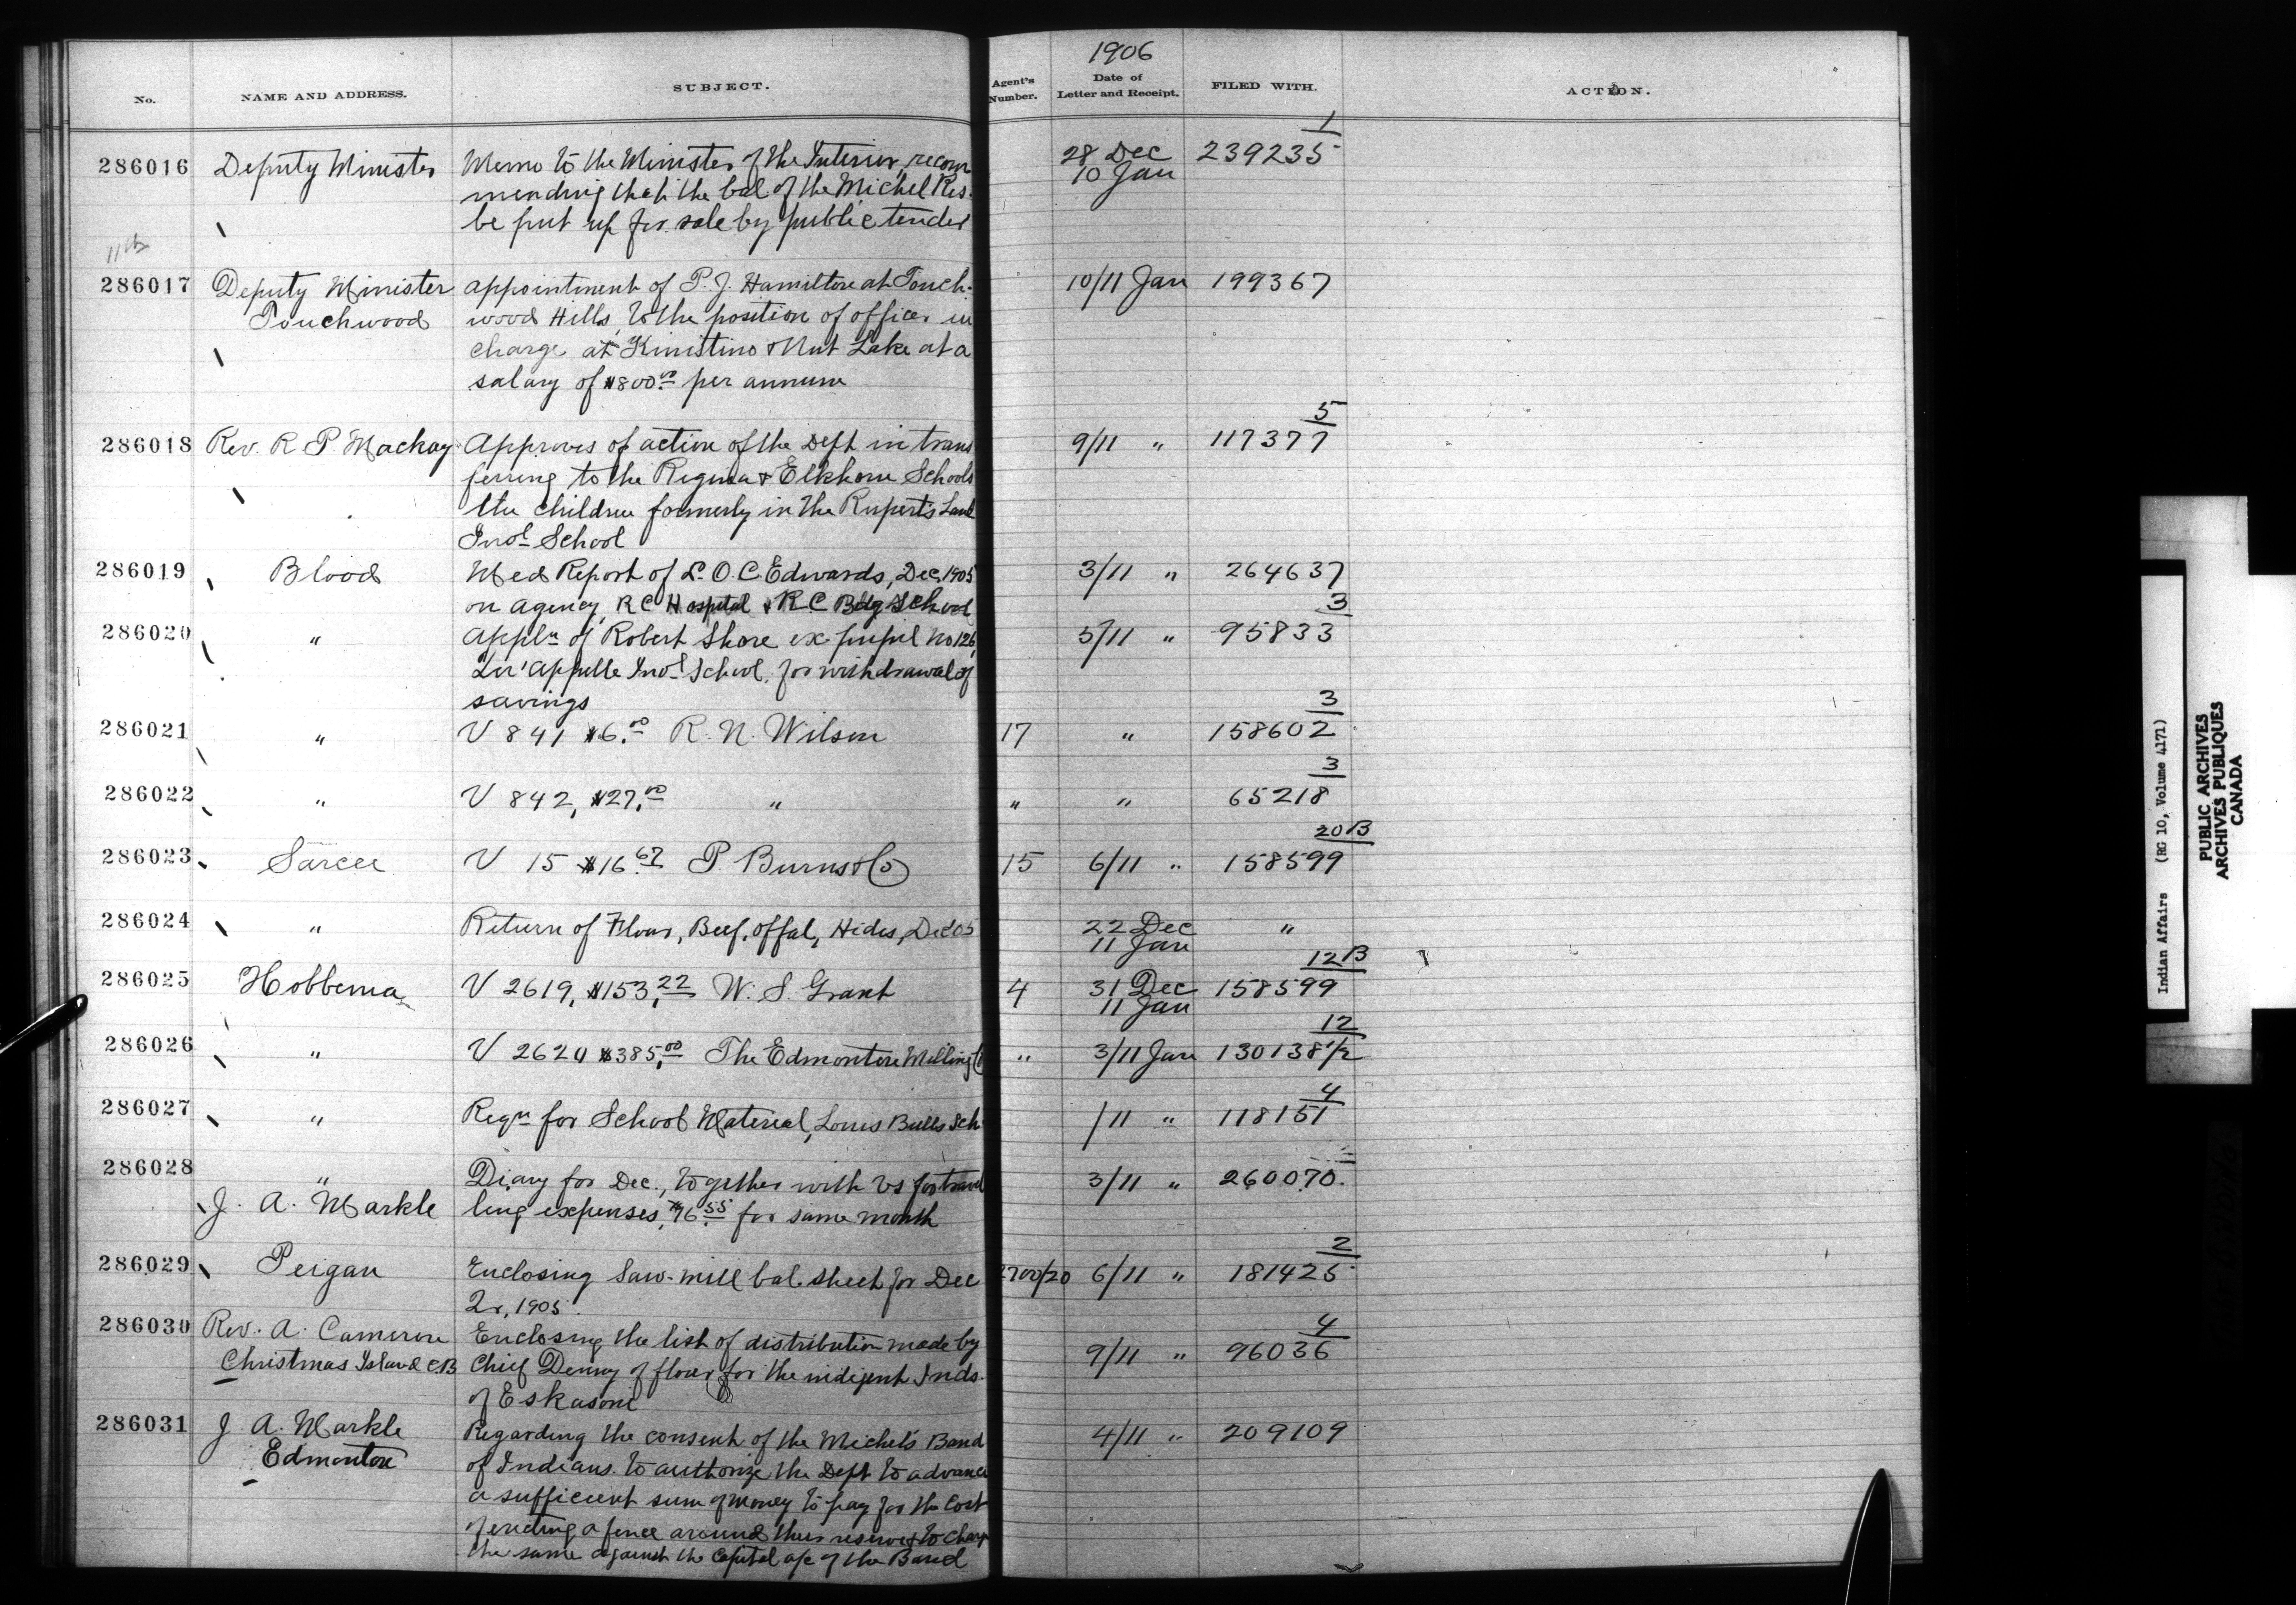 1906
No. NAME AND ADDRESS. SUBJECT. Agent's Number. Date of Letter and Receipt. FILED WITH. ACTION.
1
286016 Deputy Minister Memo to the Minister of the Interior, recom 28 Dec 239235
mending that the bal of the Michel Res. 10 Jan
be put up for sale by public tender
11th
286017 Deputy Minister appointment of P. J. Hamilton at Touch- 10/11 Jan 199367
Touchwood wood Hills, to the position of officer in
charge at Kinistino & Nut Lake at a
salary of $800.00 per annum
5
286018 Rev. R P Mackay Approves of action of the Dept in trans 9/11 " 117377
ferring to the Regina & Elkhorn Schools
the children formerly in the Rupert's Land
Indl School
286019 Blood Med Report of Dr. O. C. Edwards, Dec, 1905 3/11 " 264637
on agency, RC Hospital & RC Bdg School
3
286020 " Appln of Robert Shore ex pupil No 126, 5/11 " 95833
Qu'Appelle Indl School, for withdrawal of
savings
3
286021 " V 841 $6.00 R. N. Wilson 17 " 158602
3
286022 " V 842, $27.00 " " " 65218
20B
286023 Sarcee V 15 $16.67 P. Burns & Co 15 6/11 " 158599
286024 " Return of Flour, Beef, offal, Hides, Dec 05 22 Dec "
11 Jan
12B
286025 Hobbema V 2619, $153.22 W. S. Grant 4 31 Dec 158599
11 Jan
12
286026 " V 2620 $385.00 The Edmonton Milling Co " 3/11 Jan 130138 1/2
4
286027 " Reqn for School Material, Louis Bulls Sch /11 " 118151
286028 " Diary for Dec., together with Vs for travel 3/11 " 260070
J. A. Markle ling expenses, $76.55 for same month
2
286029 Peigan Enclosing Saw-mill bal sheet for Dec 2700/20 6/11 " 181425
Qr, 1905
4
286030 Rev. A. Cameron Enclosing the list of distribution made by 9/11 " 96036
Christmas Island C.B Chief Denny of flour for the indigent Inds.
of Eskasoni
286031 J A. Markle Regarding the consent of the Michel's Band 4/11 " 209109
Edmonton of Indians to authorize the Dept to advance
a sufficient sum of money to pay for the cost
of erecting a fence around their reserve & to charge
the same against the Capital a/c of the Band
Indian Affairs (RG 10, Volume 4171)
PUBLIC ARCHIVES
ARCHIVES PUBLIQUES
CANADA